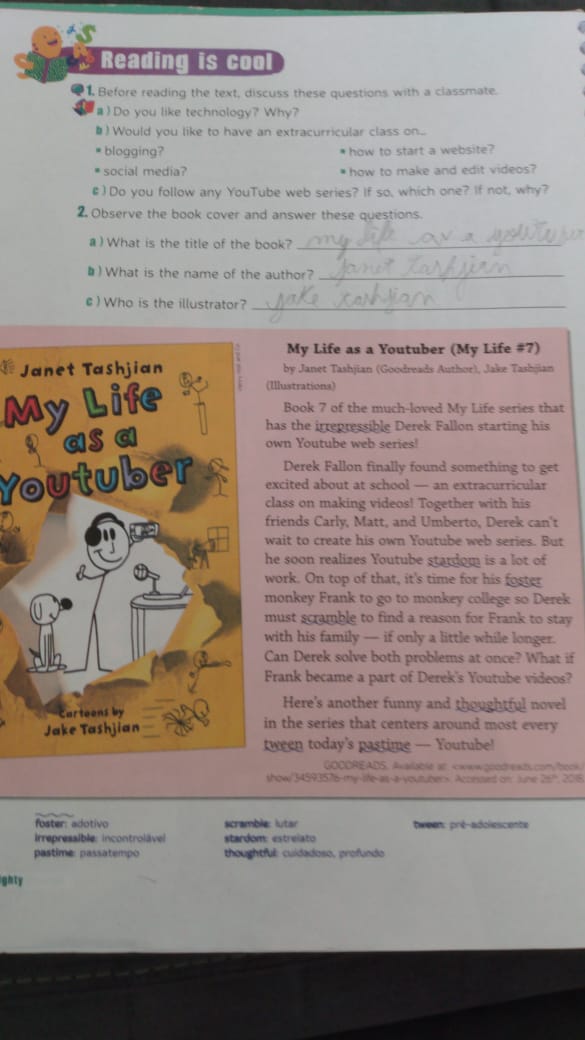 Reading is cool
1. Before reading the text, discuss these questions with a classmate.
a) Do you like technology? Why?
b) Would you like to have an extracurricular class on...
• blogging?
• how to start a website?
• social media?
• how to make and edit videos?
c) Do you follow any YouTube web series? If so, which one? If not, why?
2. Observe the book cover and answer these questions.
a) What is the title of the book? my life as a youtuber
b) What is the name of the author? janet tashjian
c) Who is the illustrator? jake tashjian
Janet Tashjian
My Life
as a
Youtuber
Cartoons by
Jake Tashjian
My Life as a Youtuber (My Life #7)
by Janet Tashjian (Goodreads Author), Jake Tashjian
(Illustrations)
Book 7 of the much-loved My Life series that
has the irrepressible Derek Fallon starting his
own Youtube web series!
Derek Fallon finally found something to get
excited about at school — an extracurricular
class on making videos! Together with his
friends Carly, Matt, and Umberto, Derek can't
wait to create his own Youtube web series. But
he soon realizes Youtube stardom is a lot of
work. On top of that, it's time for his foster
monkey Frank to go to monkey college so Derek
must scramble to find a reason for Frank to stay
with his family — if only a little while longer.
Can Derek solve both problems at once? What if
Frank became a part of Derek's Youtube videos?
Here's another funny and thoughtful novel
in the series that centers around most every
tween today's pastime — Youtube!
GOODREADS. Available at: <www.goodreads.com/book/
show/34593576-my-life-as-a-youtuber>. Accessed on: June 26th, 2018.
foster: adotivo
irrepressible: incontrolável
pastime: passatempo
scramble: lutar
stardom: estrelato
thoughtful: cuidadoso, profundo
tween: pré-adolescente
ghty